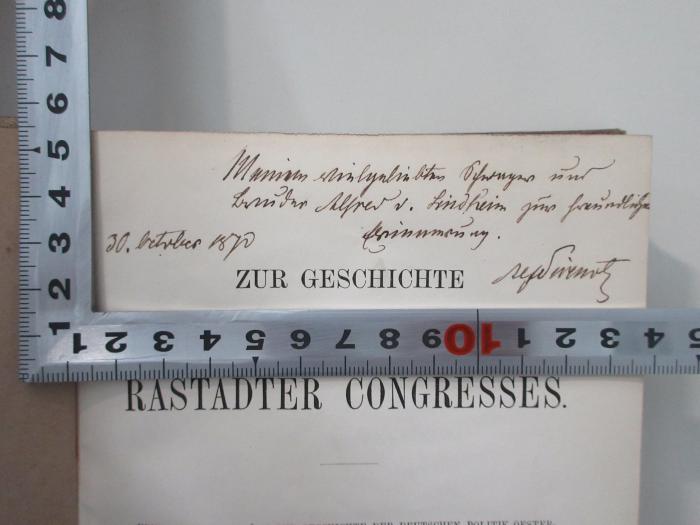 Meinem vielgeliebten Schwager und
Bruder Alfred v. Lindheim zur freundlichen
Erinnerung.
30. October 1870
ZUR GESCHICHTE
8
7
6
5
4
3
2
1
3 2 1 1 2 3 4 5 6 7 8 9 10 1 2 3 4 5
RASTADTER CONGRESSES.
GESCHICHTE DER DEUTSCHEN POLITIK OESTER-